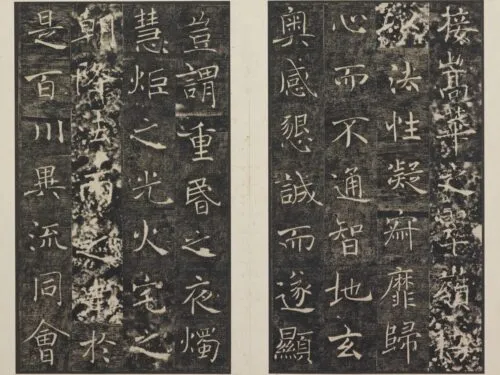 接嵩華之翠嶺竊
以法性凝寂靡歸
心而不通智地玄
奧感懇誠而遂顯
豈謂重昬之夜燭
慧炬之光火宅之
朝降法雨之澤於
是百川異流同會